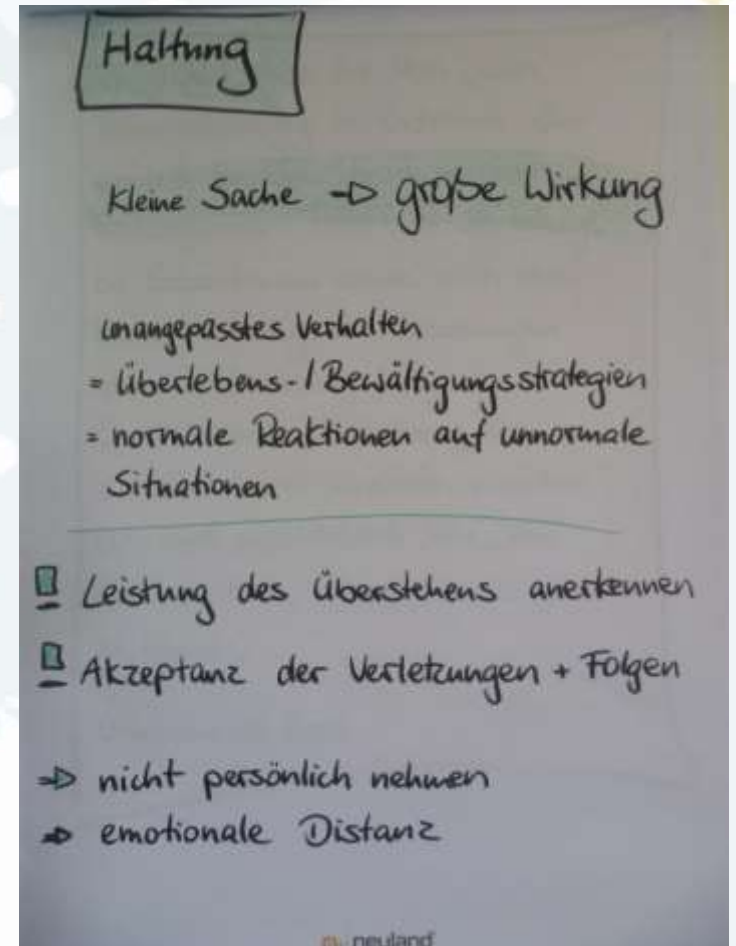 Haltung
Kleine Sache → große Wirkung
unangepasstes Verhalten
= Überlebens-/Bewältigungsstrategien
= normale Reaktionen auf unnormale
Situationen
Leistung des Überstehens anerkennen
Akzeptanz der Verletzungen + Folgen
⇒ nicht persönlich nehmen
⇒ emotionale Distanz
neuland